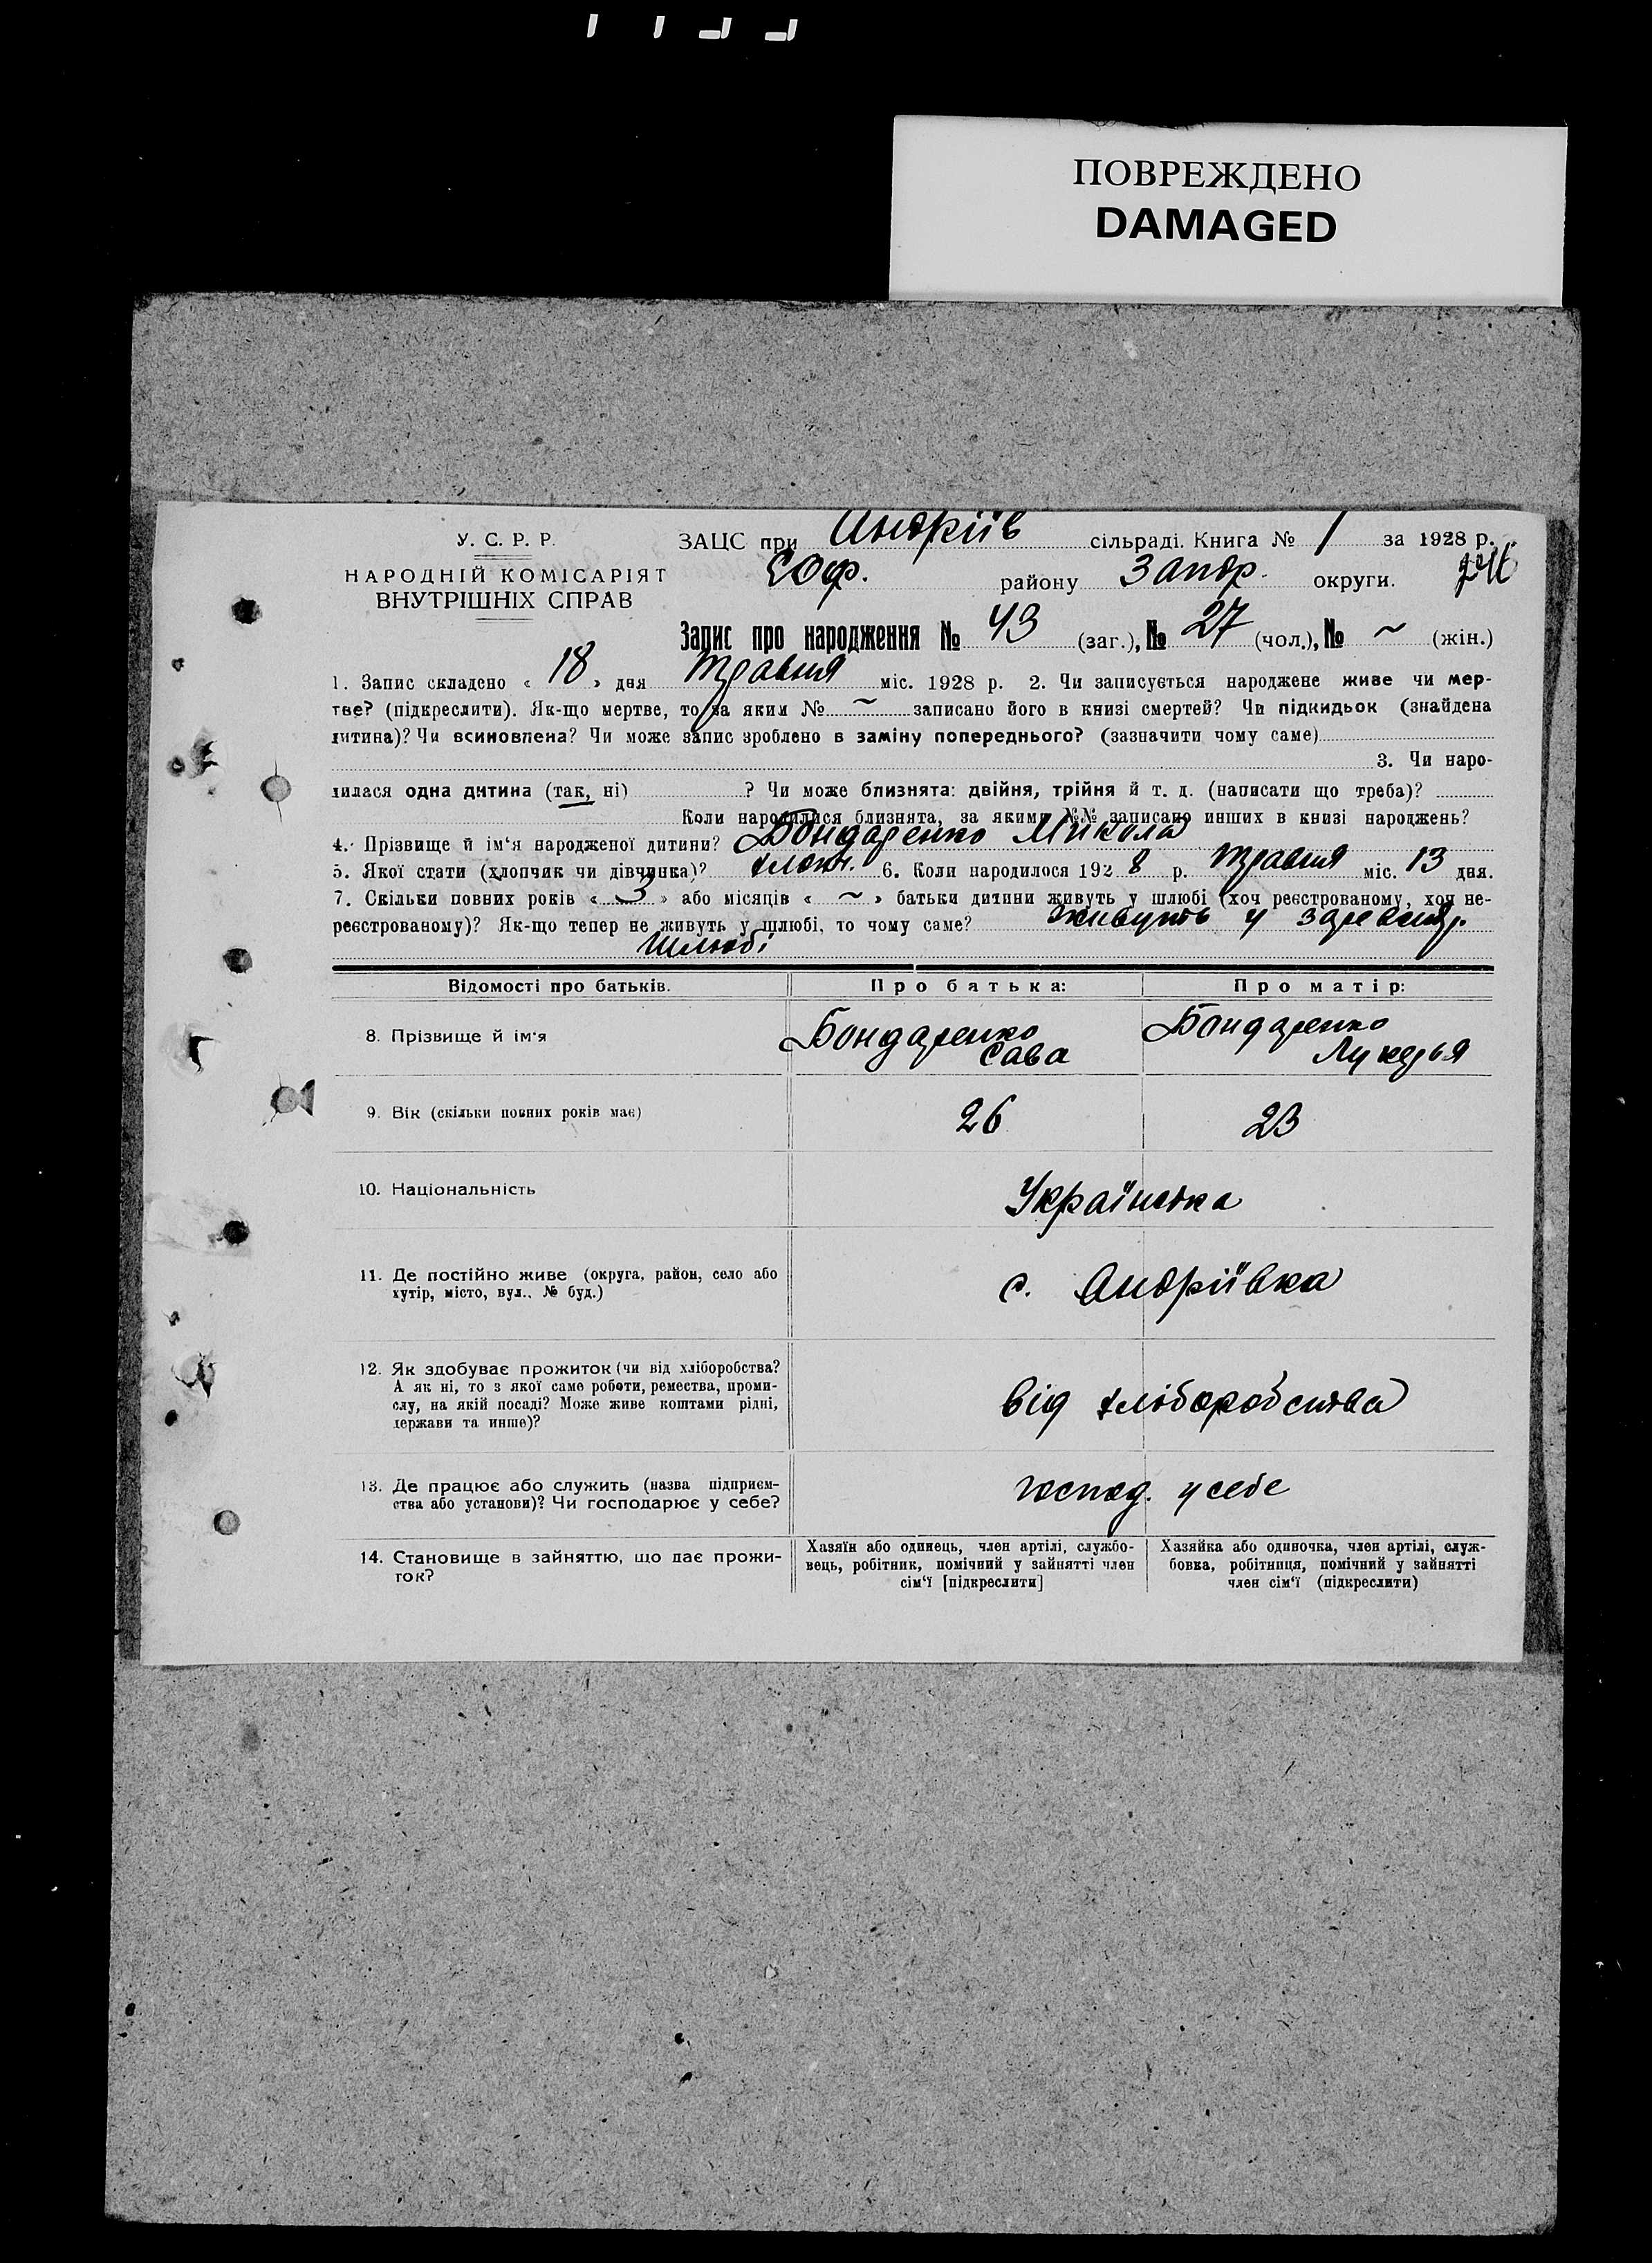 ПОВРЕЖДЕНО
DAMAGED
У. С. Р. Р.
НАРОДНІЙ КОМІСАРІЯТ
ВНУТРІШНІХ СПРАВ
ЗАЦС при Андріїв сільраді. Книга № 1 за 1928 р.
Соф. району Запор. округи.
Запис про народження № 43 (заг.), № 27 (чол.), № ~ (жін.)
1. Запис складено « 18 » дня травня міс. 1928 р. 2. Чи записується народжене живе чи мер-
тве? (підкреслити). Як-що мертве, то за яким № ~ записано його в книзі смертей? Чи підкидьок (знайдена
дитина)? Чи всиновлена? Чи може запис зроблено в заміну попереднього? (зазначити чому саме)
3. Чи наро-
дилася одна дитина (так, ні) ? Чи може близнята: двійня, трійня й т. д. (написати що треба)?
Коли народилися близнята, за якими №№ записано инших в книзі народжень?
4. Прізвище й ім'я народженої дитини? Бондаренко Микола
5. Якої стати (хлопчик чи дівчинка)? хлопч. 6. Коли народилося 192 8 р. травня міс. 13 дня.
7. Скільки повних років « 3 » або місяців « ~ » батьки дитини живуть у шлюбі (хоч реєстрованому, хоч не-
реєстрованому)? Як-що тепер не живуть у шлюбі, то чому саме? живуть у зареєстр.
шлюбі
Відомості про батьків. Про батька: Про матір:
8. Прізвище й ім'я Бондаренко Сава Бондаренко Лукерья
9. Вік (скільки повних років має) 26 23
10. Національність Українська
11. Де постійно живе (округа, район, село або
хутір, місто, вул., № буд.) с. Андріївка
12. Як здобуває прожиток (чи від хліборобства?
А як ні, то з якої саме роботи, ремества, проми-
слу, на якій посаді? Може живе коштами рідні,
держави та инше)? від хліборобства
13. Де працює або служить (назва підприєм-
ства або установи)? Чи господарює у себе? господ. у себе
14. Становище в зайняттю, що дає прожи-
ток?
Хазяїн або одинець, член артілі, службо-
вець, робітник, помічний у зайнятті член
сім'ї [підкреслити]
Хазяйка або одиночка, член артілі, служ-
бовка, робітниця, помічний у зайнятті
член сім'ї (підкреслити)